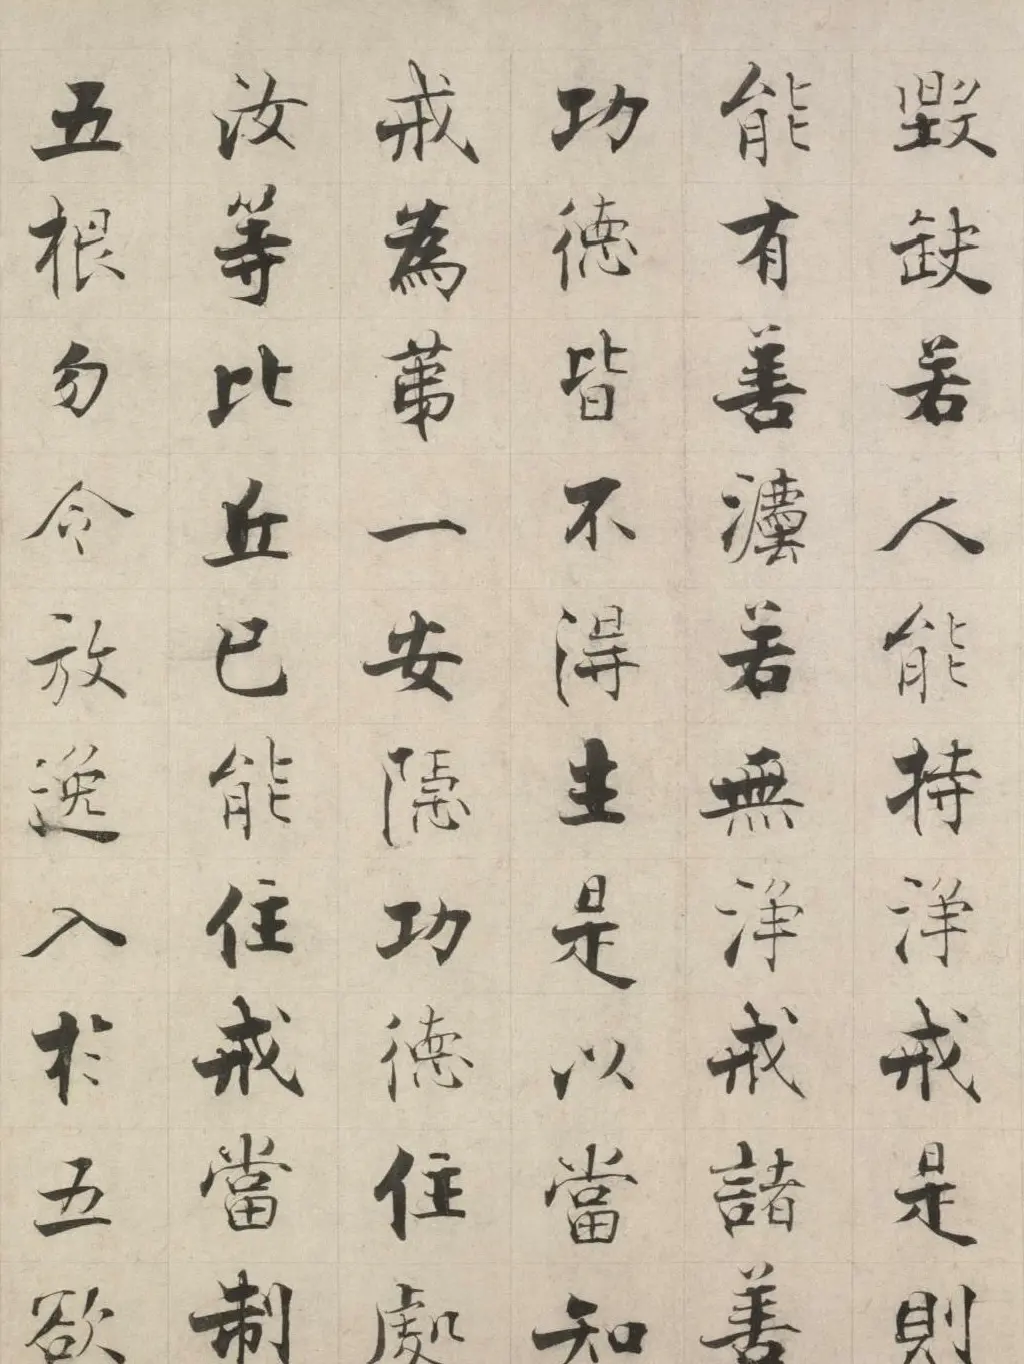 毀缺若人能持淨戒是則
能有善灋若無淨戒諸善
功德皆不得生是以當知
戒為第一安隱功德住處
汝等比丘已能住戒當制
五根勿令放逸入於五欲